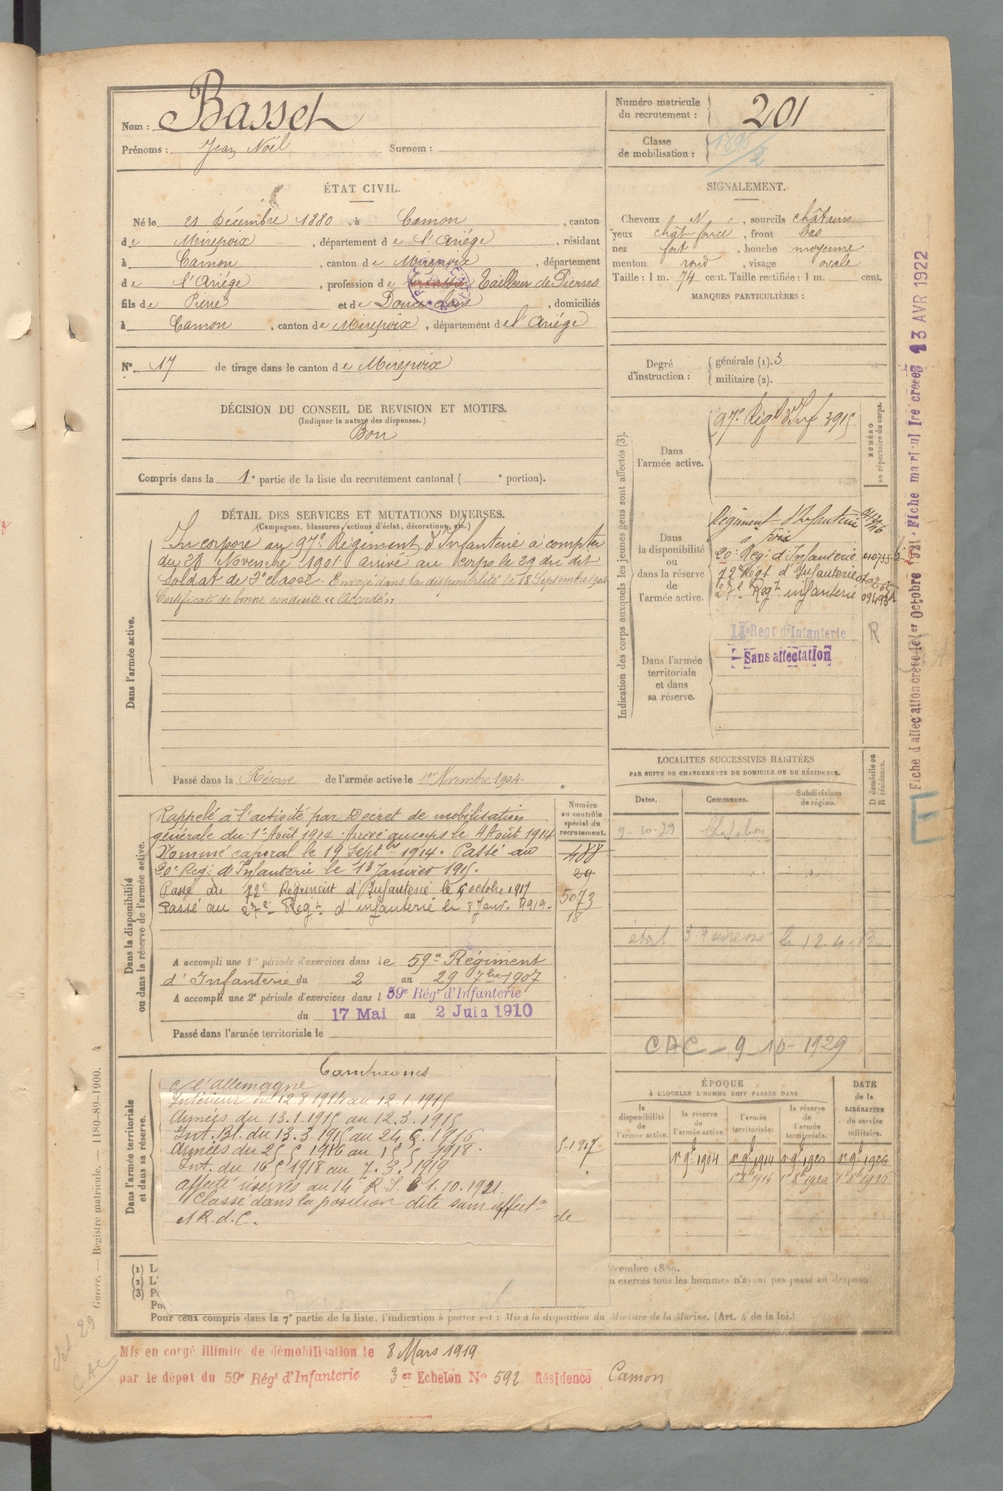 Nom : Basset
Prénoms : Jean Noël Surnom :
Numéro matricule du recrutement : 201
Classe de mobilisation :
ÉTAT CIVIL.
Né le 21 Décembre 1880, à Camon, canton
de Mirepoix, département de l'Ariége, résidant
à Camon, canton de Mirepoix, département
de l'Ariége, profession de Tailleur de Pierres
fils de Pierre et de, domiciliés
à Camon, canton de Mirepoix, département de l'Ariége
N° 17 de tirage dans le canton de Mirepoix
DÉCISION DU CONSEIL DE REVISION ET MOTIFS.
(Indiquer la nature des dispenses.)
Bon
Compris dans la 1e partie de la liste du recrutement cantonal ( e portion).
SIGNALEMENT.
Cheveux, sourcils châtains
yeux, front bas
nez fort, bouche moyenne
menton rond, visage ovale
Taille : 1 m. 74 cent. Taille rectifiée : 1 m. cent.
MARQUES PARTICULIÈRES :
Degré d'instruction : générale (1). 3
militaire (2).
DÉTAIL DES SERVICES ET MUTATIONS DIVERSES.
(Campagnes, blessures, actions d'éclat, décorations, etc.)
Dans l'armée active.
Incorporé au 97e Régiment d'Infanterie à compter
du Novembre 1901 arrivé au Corps le 29 du dit
Soldat de 2e classe. Envoyé dans la disponibilité le 18 Septembre 1904
Certificat de bonne conduite "Accordé"
Passé dans la Réserve de l'armée active le 1er Novembre 1904.
Indication des corps auxquels les jeunes gens sont affectés (3).
NUMÉRO au répertoire du corps.
Dans l'armée active.
97e Régt d'Inf 3915
Dans la disponibilité ou dans la réserve de l'armée active.
Régiment d'Infanterie
à Foix
20e Régt d'Infanterie
72e Régt d'Infanterie
27e Régt infanterie
Dans l'armée territoriale et dans sa réserve.
Régt d'Infanterie
Sans affectation
R
Fiche d'affectation créée le 1er Octobre 1921. Fiche matricule créée 13 AVR 1922
Dans la disponibilité ou dans la réserve de l'armée active.
Numéro au contrôle spécial du recrutement.
Rappelé à l'activité par Décret de mobilisation
générale du 1er Août 1914. Arrivé au corps le 4 Août 1914
Nommé caporal le 19 Septbre 1914. Passé au
20e Régt d'Infanterie le 13 Janvier 1915.
Passé au 72e Régiment d'Infanterie le 5 octobre 1917
Passé au 27e Régt d'infanterie le 8 Janv. 1919.
488
5073
18
A accompli une 1re période d'exercices dans le 59e Régiment
d'Infanterie du 2 au 29 7bre 1907
A accompli une 2e période d'exercices dans l 59e Régt d'Infanterie
du 17 Mai au 2 Juin 1910
Passé dans l'armée territoriale le
LOCALITÉS SUCCESSIVES HABITÉES
PAR SUITE DE CHANGEMENTS DE DOMICILE OU DE RÉSIDENCE.
Dates. Communes. Subdivisions de région. D domicile ou R résidence.
9-10-29
le 12-4-
CAC - 9-10-1929
Dans l'armée territoriale et dans sa réserve.
Campagnes
c/ l'Allemagne
Intérieur du 12.8.1914 au 12.1.1915
Armées du 13.1.1915 au 12.3.1915
Int. Bl. du 13.3.1915 au 24.5.1916
Armées du 25.5.1916 au 15.5.1918.
Int. du 16.5.1918 au 7.3.1919
affecté réserves au 14e R.I. le 1.10.1921.
Classé dans la position dite sans affectn
et R.d.C.
ÉPOQUE
À LAQUELLE L'HOMME DOIT PASSER DANS
la disponibilité de l'armée active. la réserve de l'armée active. l'armée territoriale. la réserve de l'armée territoriale.
DATE de la LIBÉRATION du service militaire.
1er 9bre 1904 1er 9bre 1914 1er 9bre 1920 1er 9bre 1926
Pour ceux compris dans la 7e partie de la liste, l'indication à porter est : Mis à la disposition du Ministre de la Marine. (Art. 4 de la loi.)
Guerre. — Registre matricule. — 1180-89-1900. 4
Mis en congé illimité de démobilisation le 8 Mars 1919
par le dépôt du 59e Régt d'Infanterie 3er Echelon N° 592 Résidence Camon